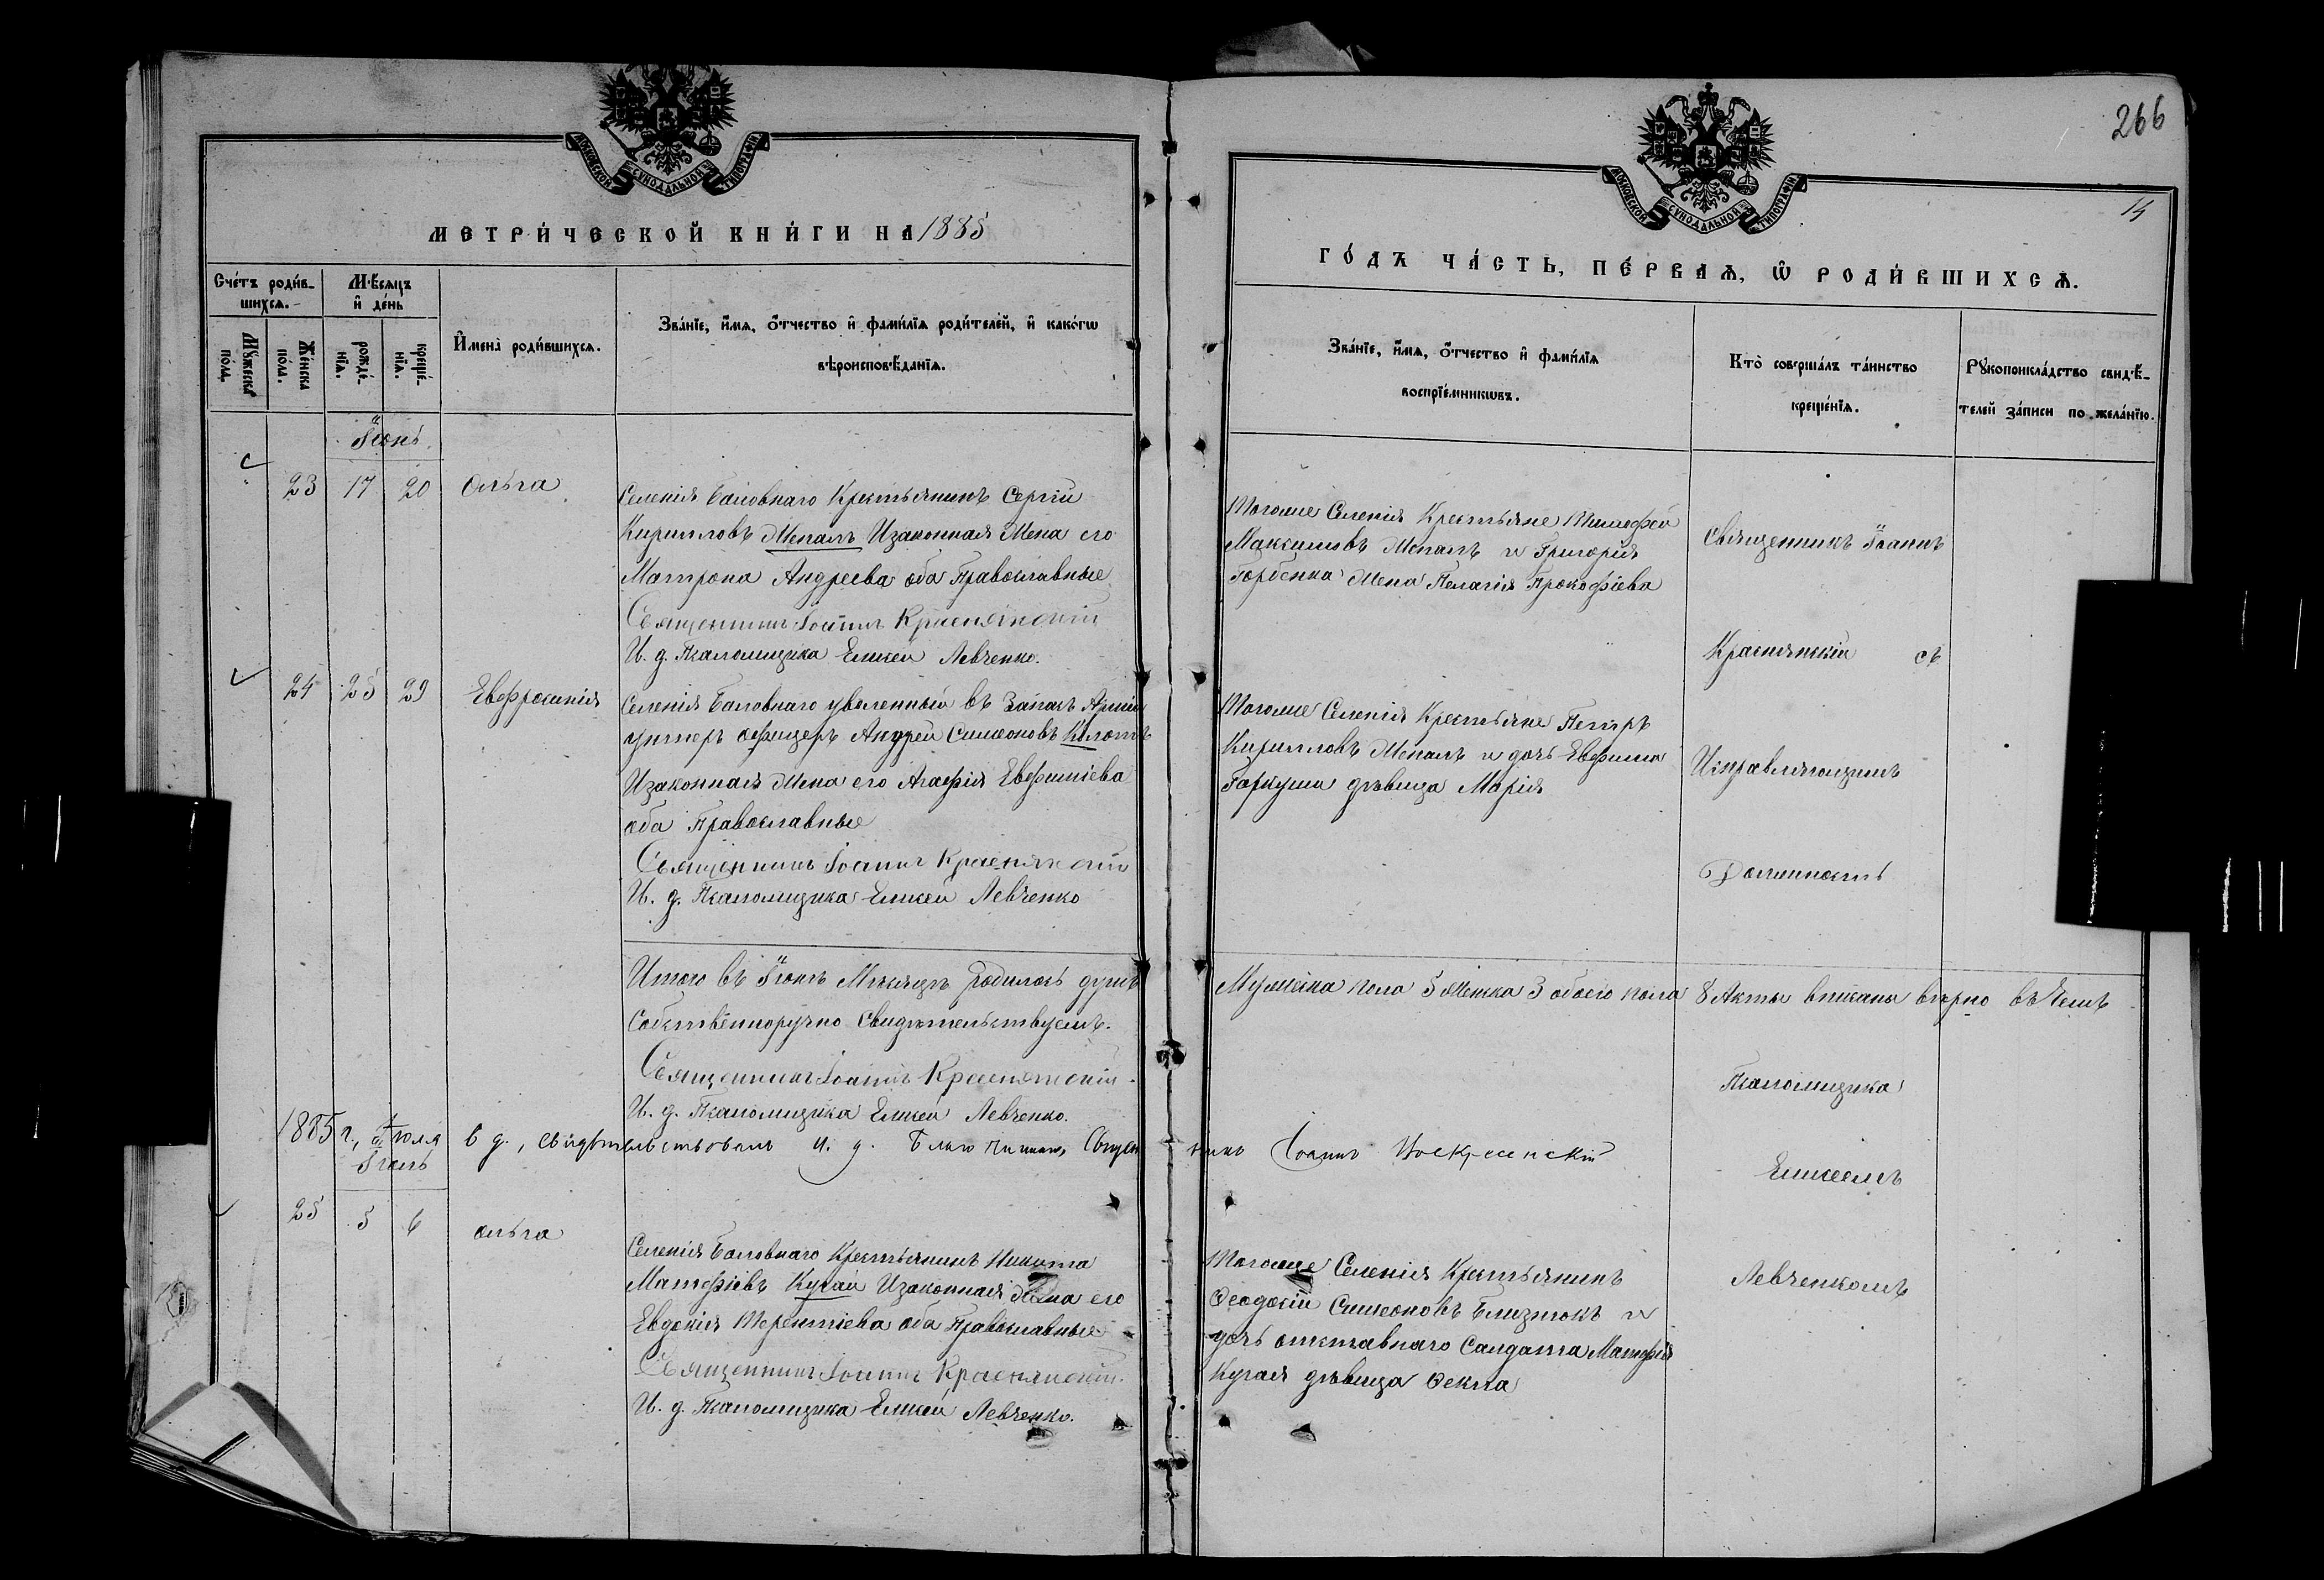 266
14
МОСКОВСКОЙ СѴНОДАЛЬНОЙ ТИПОГРАФІИ
МЕТРИ́ЧЕСКОЙ КНИ́ГИ НА 1885
Сче́тъ роди́в-
шихсѧ.
Мѣ́сѧцъ
и҆ де́нь
Мꙋ́жеска по́ла.
Же́нска по́ла.
рожде́-
нїѧ.
креще́-
нїѧ.
И҆мена̀ роди́вшихсѧ.
Зва́нїе, и҆́мѧ, ѻ҆́тчество и҆ фами́лїѧ роди́телей, и҆ како́гѡ
вѣроисповѣ́данїѧ.
Іюнь
23 17 20 Ольга
Селенія Баловнаго Крестьянинъ Сергій
Кирилловъ Шепаль Изаконная Жена его
Матрона Андреева оба Православные
Священникъ Іоаннъ Краснянскій
И. д. Псаломщика Елисей Левченко.
24 25 29 Евфросинія
Селенія Баловнаго уволенный въ Запасъ Арміи
унтеръ офицеръ Андрей Симеоновъ
Изаконная Жена его Агафія Евфиміева
оба Православные
Священникъ Іоаннъ Краснянскій
И. д. Псаломщика Елисей Левченко
Итого въ Іюнѣ Мѣсяцѣ родилось душъ
Собственноручно Свидѣтельствуемъ.
Священникъ Іоаннъ Краснянскій.
И. д. Псаломщика Елисей Левченко.
1885 г., Іюля 6 д., свидѣтельствовалъ и. д. Благочиннаго, Священникъ Іоаннъ Воскресенскій
Іюль
25 5 6 Ольга
Селенія Баловнаго Крестьянинъ Никита
Матфіевъ Кугай Изаконная Жена его
Евдокія Терентіева оба Православные
Священникъ Іоаннъ Краснянскій.
И. д. Псаломщика Елисей Левченко.
МОСКОВСКОЙ СѴНОДАЛЬНОЙ ТИПОГРАФІИ
ГО́ДЪ ЧА́СТЬ, ПЕ́РВАѦ, Ѡ҆ РОДИ́ВШИХСѦ.
Зва́нїе, и҆́мѧ, ѻ҆́тчество и҆ фами́лїѧ
воспрїе́мникѡвъ.
Кто̀ соверша́лъ та́инство
креще́нїѧ.
Рꙋкоприкла́дство свидѣ́-
телей за́писи по жела́нїю.
Тогоже Селенія Крестьяне Тимофей
Максимовъ Шепаль и Григорія
Горбенка Жена Пелагія Прокофіева
Священникъ Іоаннъ
Краснянскій съ
Тогоже Селенія Крестьяне Петръ
Кирилловъ Шепаль и дочь Евфима
Гаркуши дѣвица Марія
Исправляющимъ
Должность
Мужеска пола 5 Женска 3 обоего пола 8 Акты вписаны вѣрно въ Чемъ
Псаломщика
Елисеемъ
Левченкомъ
Тогоже Селенія Крестьянинъ
Феодосій Симеоновъ Близнюкъ и
дочь отставнаго Салдата Матфія
Кугая дѣвица Фекла